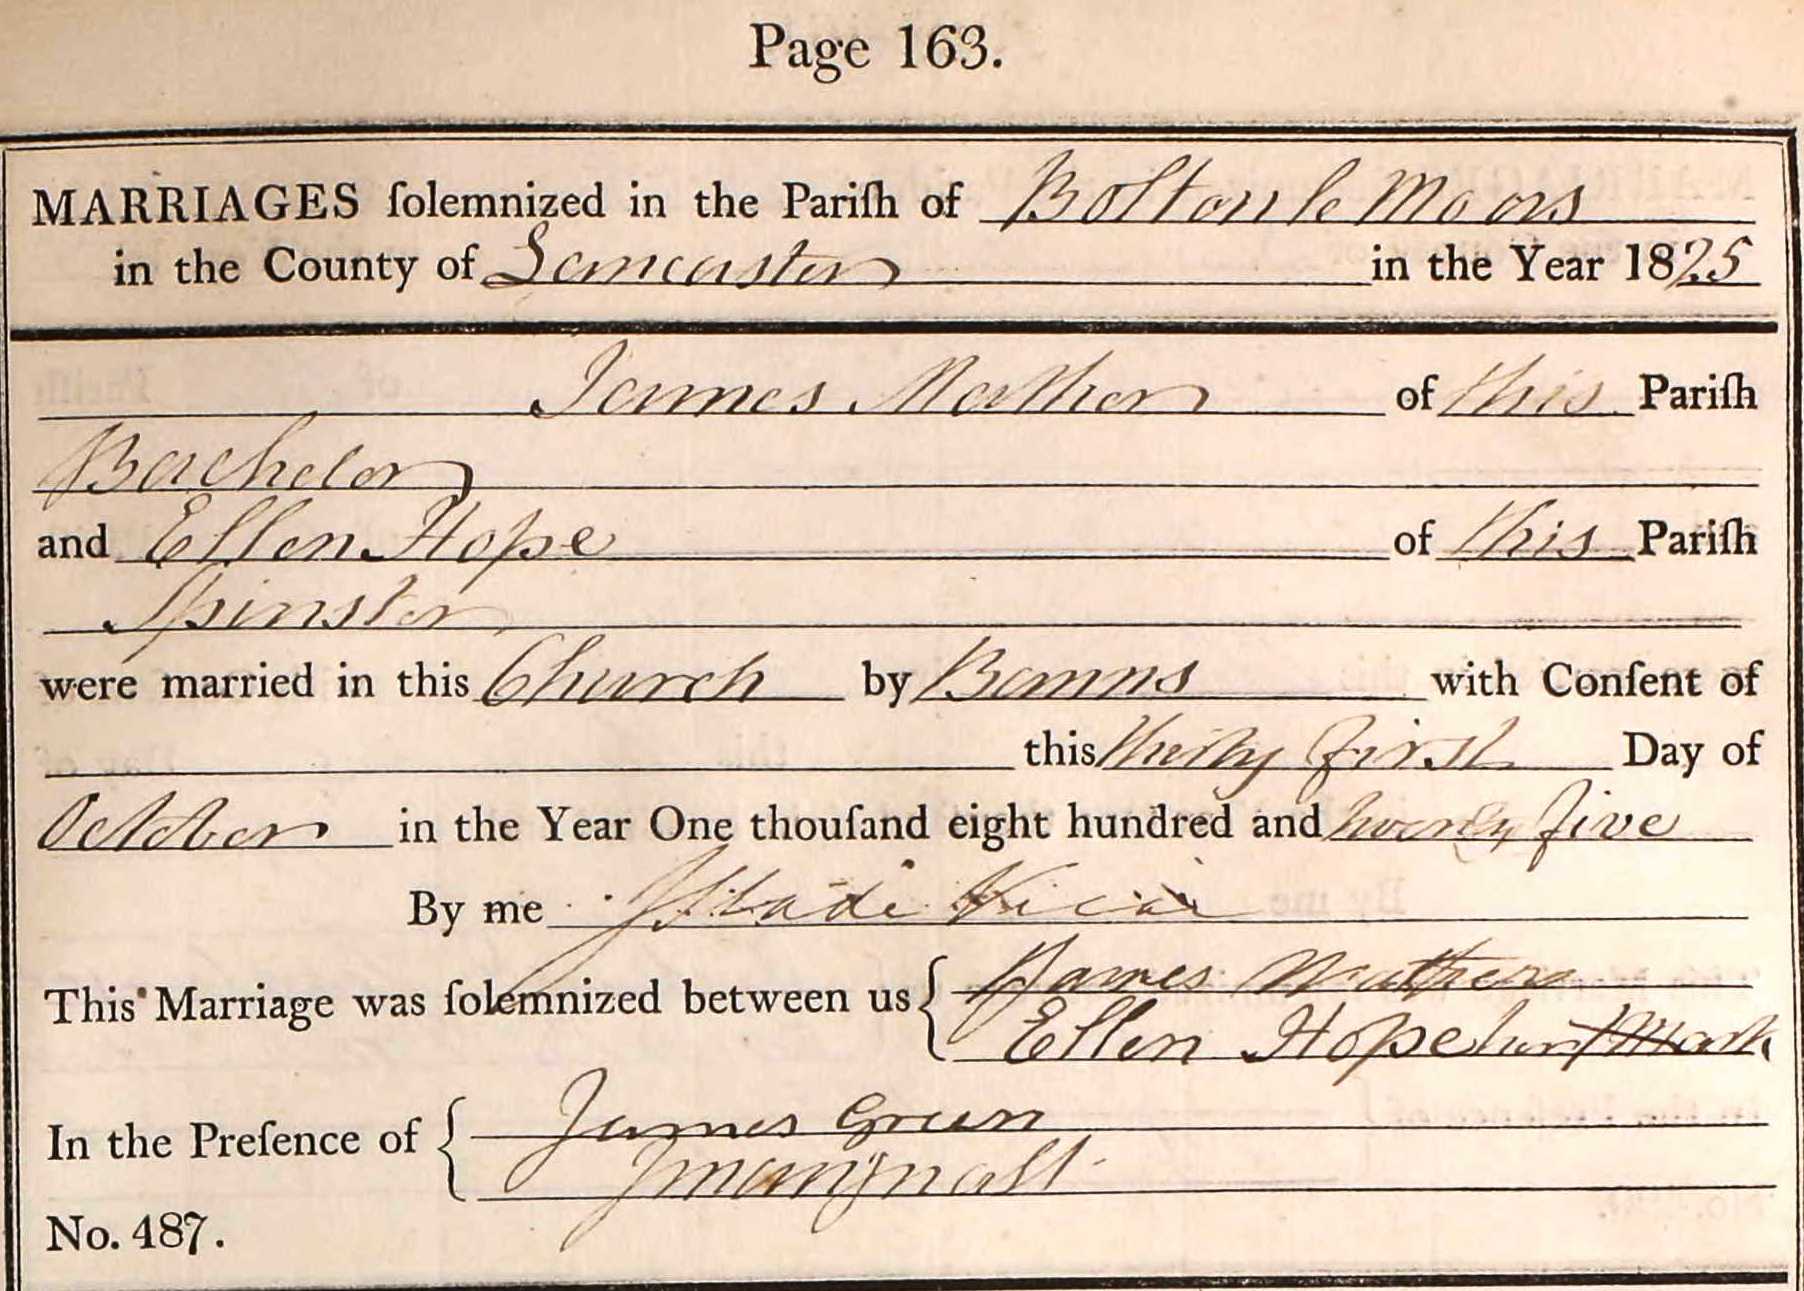 Page 163.
MARRIAGES ſolemnized in the Pariſh of Bolton le Moors
in the County of Lancaster in the Year 1825
James Mather of this Pariſh
Bachelor
and Ellen Hope of this Pariſh
Spinster
were married in this Church by Banns with Conſent of
this thirty first Day of
October in the Year One thouſand eight hundred and twenty five
By me J Slade Vicar
This Marriage was ſolemnized between us { James Mather
Ellen Hope her X Mark
In the Preſence of { James Green
J Mangnall
No. 487.